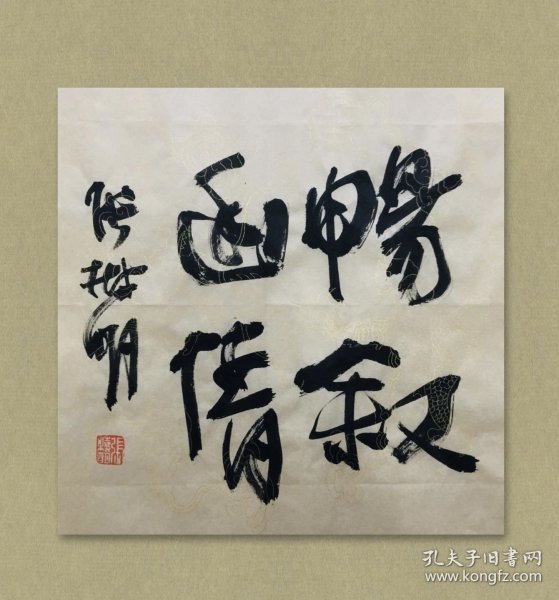 暢叙
幽情
张继明
孔夫子旧书网
www.kongfz.com